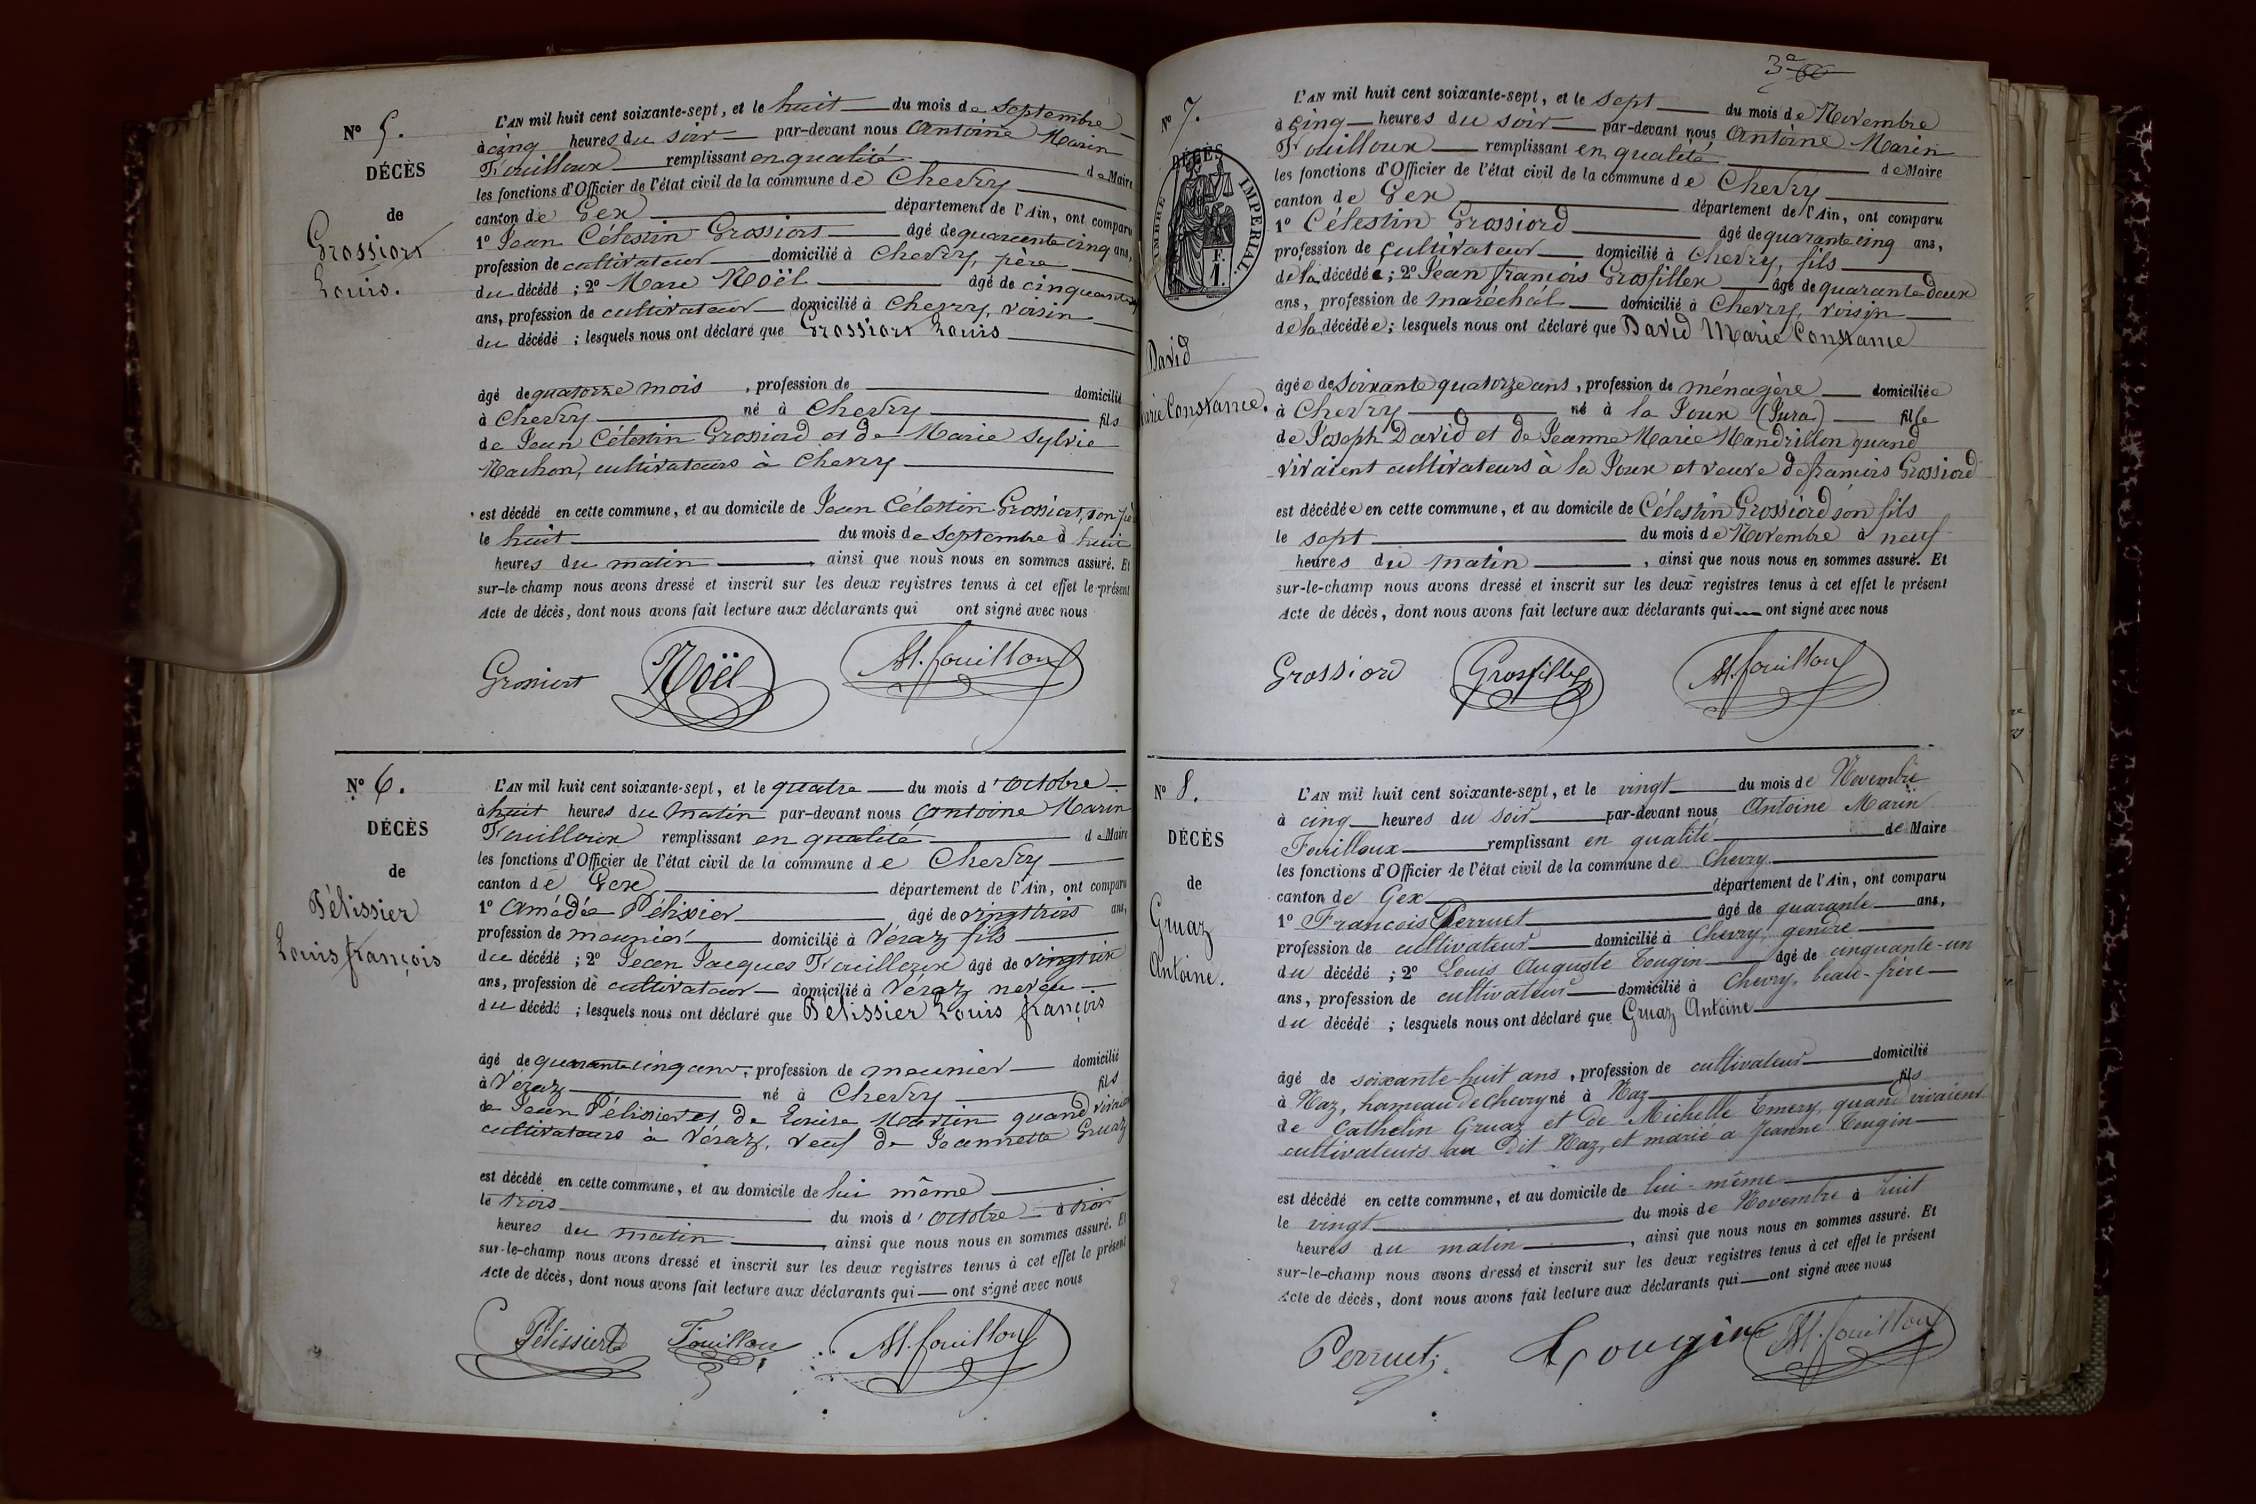 Nº 5.
DÉCÈS
de
Grossiort
Louis.
L'AN mil huit cent soixante-sept, et le huit du mois de Septembre
à cinq heures du soir par-devant nous Antoine Marin
Fouilloux remplissant en qualité de Maire
les fonctions d'Officier de l'état civil de la commune de Chevry
canton de Gex département de l'Ain, ont comparu
1º Jean Célestin Grossiort âgé de quarante cinq ans,
profession de cultivateur domicilié à Chevry, père
du décédé ; 2º Marc Noël âgé de cinquante
ans, profession de cultivateur domicilié à Chevry, voisin
du décédé ; lesquels nous ont déclaré que Grossiort Louis
âgé de quatorze mois , profession de domicilié
à Chevry né à Chevry fils
de Jean Célestin Grossiord et de Marie Sylvie
Machon, cultivateurs à Chevry
est décédé en cette commune, et au domicile de Jean Célestin Grossiort, son
le huit du mois de Septembre à huit
heures du matin , ainsi que nous nous en sommes assuré. Et
sur-le-champ nous avons dressé et inscrit sur les deux registres tenus à cet effet le présent
Acte de décès, dont nous avons fait lecture aux déclarants qui ont signé avec nous
Grossiort Noël M. fouilloux
Nº 6.
DÉCÈS
de
Pélissier
Louis françois
L'AN mil huit cent soixante-sept, et le quatre du mois d'Octobre
à huit heures du matin par-devant nous Antoine Marin
Fouilloux remplissant en qualité de Maire
les fonctions d'Officier de l'état civil de la commune de Chevry
canton de Gex département de l'Ain, ont comparu
1º Amédée Pélissier âgé de vingt trois ans,
profession de meunier domicilié à Véraz fils
du décédé ; 2º Jean Jacques Fouilloux âgé de vingt six
ans, profession de cultivateur domicilié à Véraz neveu
du décédé ; lesquels nous ont déclaré que Pélissier Louis françois
âgé de quarante cinq ans, profession de meunier domicilié
à Véraz né à Chevry fils
de Jean Pélissier et de Louise Martin quand vivaient
cultivateurs à Véraz, veuf de Jeannette Gruaz
est décédé en cette commune, et au domicile de lui même
le trois du mois d'Octobre à trois
heures du matin , ainsi que nous nous en sommes assuré. Et
sur-le-champ nous avons dressé et inscrit sur les deux registres tenus à cet effet le présent
Acte de décès, dont nous avons fait lecture aux déclarants qui ont signé avec nous
Pélissier Fouilloux M. fouilloux
3e
Nº 7.
DÉCÈS
TIMBRE IMPERIAL.
1 F.
David
Marie Constance.
L'AN mil huit cent soixante-sept, et le sept du mois de Novembre
à cinq heures du soir par-devant nous Antoine Marin
Fouilloux remplissant en qualité de Maire
les fonctions d'Officier de l'état civil de la commune de Chevry
canton de Gex département de l'Ain, ont comparu
1º Célestin Grossiord âgé de quarante cinq ans,
profession de cultivateur domicilié à Chevry, fils
de la décédée ; 2º Jean françois Grosfillex âgé de quarante deux
ans, profession de maréchal domicilié à Chevry, voisin
de la décédée ; lesquels nous ont déclaré que David Marie Constance
âgée de Soixante quatorze ans, profession de ménagère domiciliée
à Chevry né à la Joux (Jura) fille
de Joseph David et de Jeanne Marie Mandrillon quand
vivaient cultivateurs à la Joux et veuve de françois Grossiord
est décédée en cette commune, et au domicile de Célestin Grossiord son fils
le sept du mois de Novembre à neuf
heures du matin , ainsi que nous nous en sommes assuré. Et
sur-le-champ nous avons dressé et inscrit sur les deux registres tenus à cet effet le présent
Acte de décès, dont nous avons fait lecture aux déclarants qui ont signé avec nous
Grossiord Grosfillex M. fouilloux
Nº 8.
DÉCÈS
de
Gruaz
Antoine.
L'AN mil huit cent soixante-sept, et le vingt du mois de Novembre
à cinq heures du soir par-devant nous Antoine Marin
Fouilloux remplissant en qualité de Maire
les fonctions d'Officier de l'état civil de la commune de Chevry
canton de Gex département de l'Ain, ont comparu
1º François Perruet âgé de quarante ans,
profession de cultivateur domicilié à Chevry, gendre
du décédé ; 2º Louis Auguste Tougin âgé de cinquante-un
ans, profession de cultivateur domicilié à Chevry, beau-frère
du décédé ; lesquels nous ont déclaré que Gruaz Antoine
âgé de soixante-huit ans, profession de cultivateur domicilié
à Naz, hameau de Chevry né à Naz fils
de Cathelin Gruaz et de Michelle Emery, quand vivaient
cultivateurs au dit Naz, et marié à Jeanne Tougin
est décédé en cette commune, et au domicile de lui-même
le vingt du mois de Novembre à huit
heures du matin , ainsi que nous nous en sommes assuré. Et
sur-le-champ nous avons dressé et inscrit sur les deux registres tenus à cet effet le présent
Acte de décès, dont nous avons fait lecture aux déclarants qui ont signé avec nous
Perruet L Tougin M. fouilloux